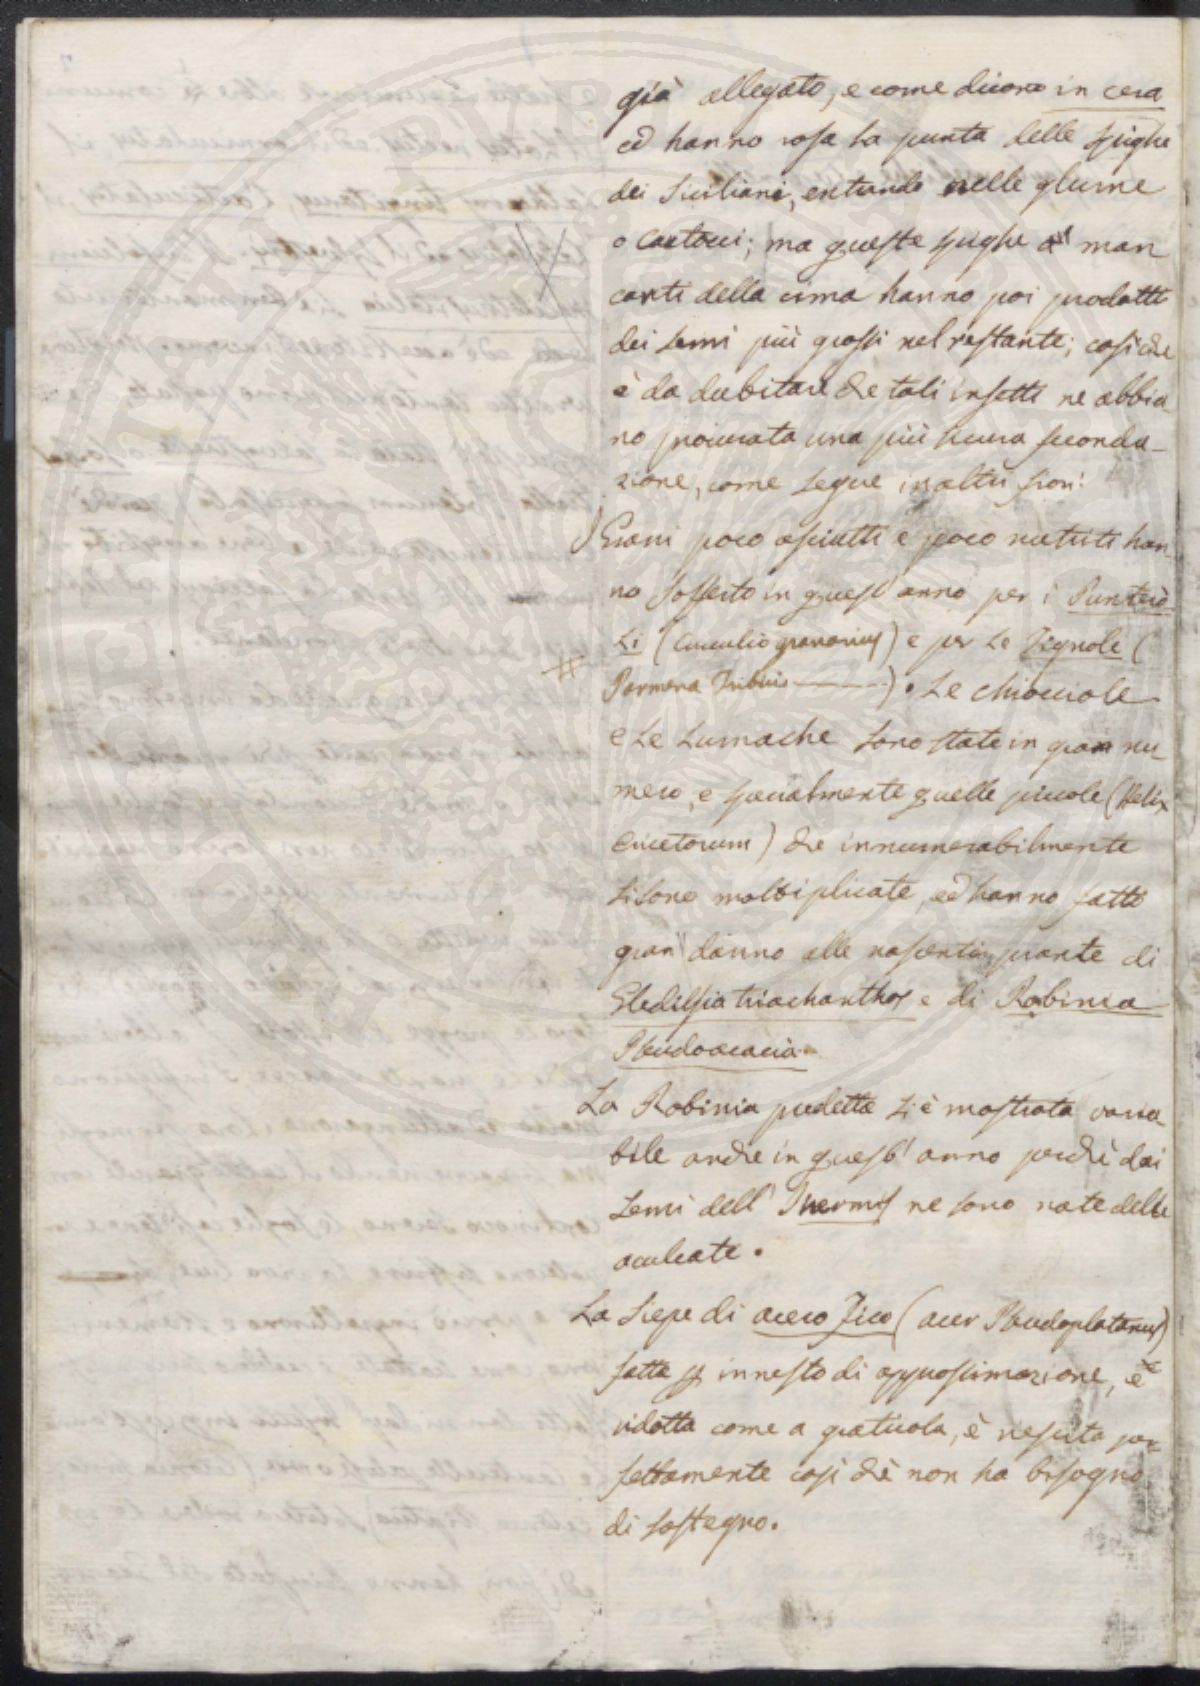 già allegato, e come dicono in cera
ed hanno rosa la punta delle spighe
dei Siciliani, entrando nelle glume
o cartocci; ma queste spighe man
canti della cima hanno poi prodotti
dei semi più grossi nel restante; cosiche
è da dubitare che tali insetti ne abbia
no procurata una più sicura feconda-
zione, come segue in altri fiori.
I Grani poco asciutti e poco nutriti han
no sofferto in quest'anno per i Punteruo
li (Curculio granarius) e per le Tignole (
). Le chiocciole
e le Lumache sono state in gran nu-
mero, e specialmente quelle piccole (Helix
Ericetorum) che innumerabilmente
si sono moltiplicate, ed hanno fatto
gran danno alle nascenti piante di
Gledissia triachanthos e di Robinia
Pseudoacacia.
La Robinia predetta si è mostrata varia-
bile anche in quest'anno perchè dai
semi dell'Inermis ne sono nate delle
aculeate.
La siepe di acero Fico (acer Pseudoplatanus)
fatta innesto di approssimazione, e
ridotta come a graticola, è riescita per-
fettamente così chè non ha bisogno
di sostegno.